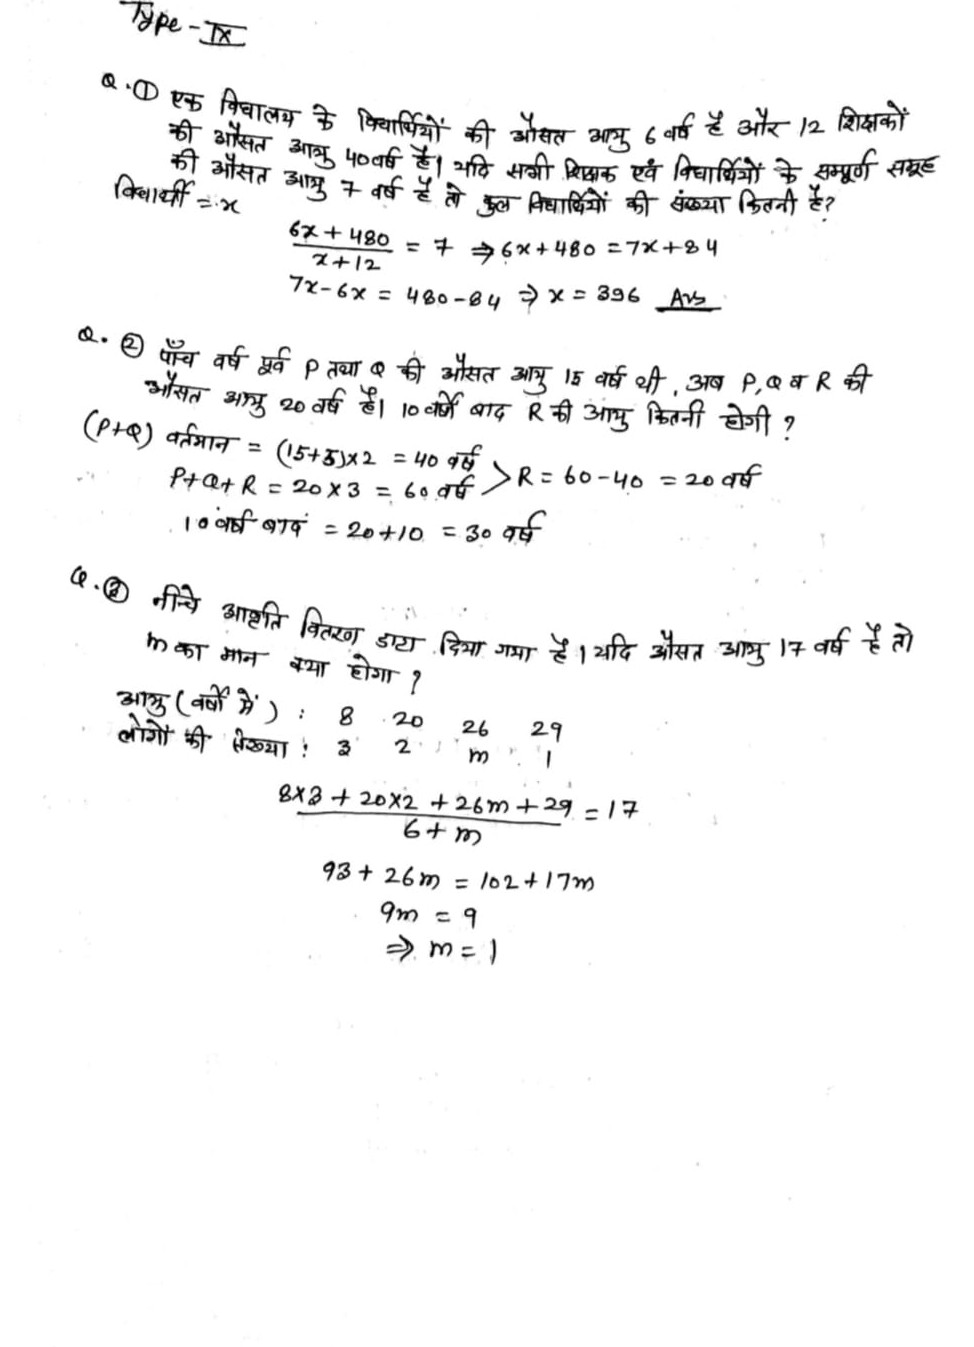 Type - IX
Q.① एक विद्यालय के विद्यार्थियों की औसत आयु 6 वर्ष है और 12 शिक्षकों
की औसत आयु 40 वर्ष है। यदि सभी शिक्षक एवं विद्यार्थियों के सम्पूर्ण समूह
की औसत आयु 7 वर्ष है तो कुल विद्यार्थियों की संख्या कितनी है?
विद्यार्थी = x
(6x + 480)/(x + 12) = 7 ⇒ 6x + 480 = 7x + 84
7x - 6x = 480 - 84 ⇒ x = 396 Ans
Q.② पाँच वर्ष पूर्व P तथा Q की औसत आयु 15 वर्ष थी, अब P, Q व R की
औसत आयु 20 वर्ष है। 10 वर्ष बाद R की आयु कितनी होगी ?
(P+Q) वर्तमान = (15+5)×2 = 40 वर्ष
P+Q+R = 20 × 3 = 60 वर्ष > R = 60 - 40 = 20 वर्ष
10 वर्ष बाद = 20 + 10 = 30 वर्ष
Q.③ नीचे आवृति वितरण डाटा दिया गया है। यदि औसत आयु 17 वर्ष है तो
m का मान क्या होगा ?
आयु (वर्षों में) : 8 20 26 29
लोगों की संख्या : 3 2 m 1
(8×3 + 20×2 + 26m + 29)/(6 + m) = 17
93 + 26m = 102 + 17m
9m = 9
⇒ m = 1